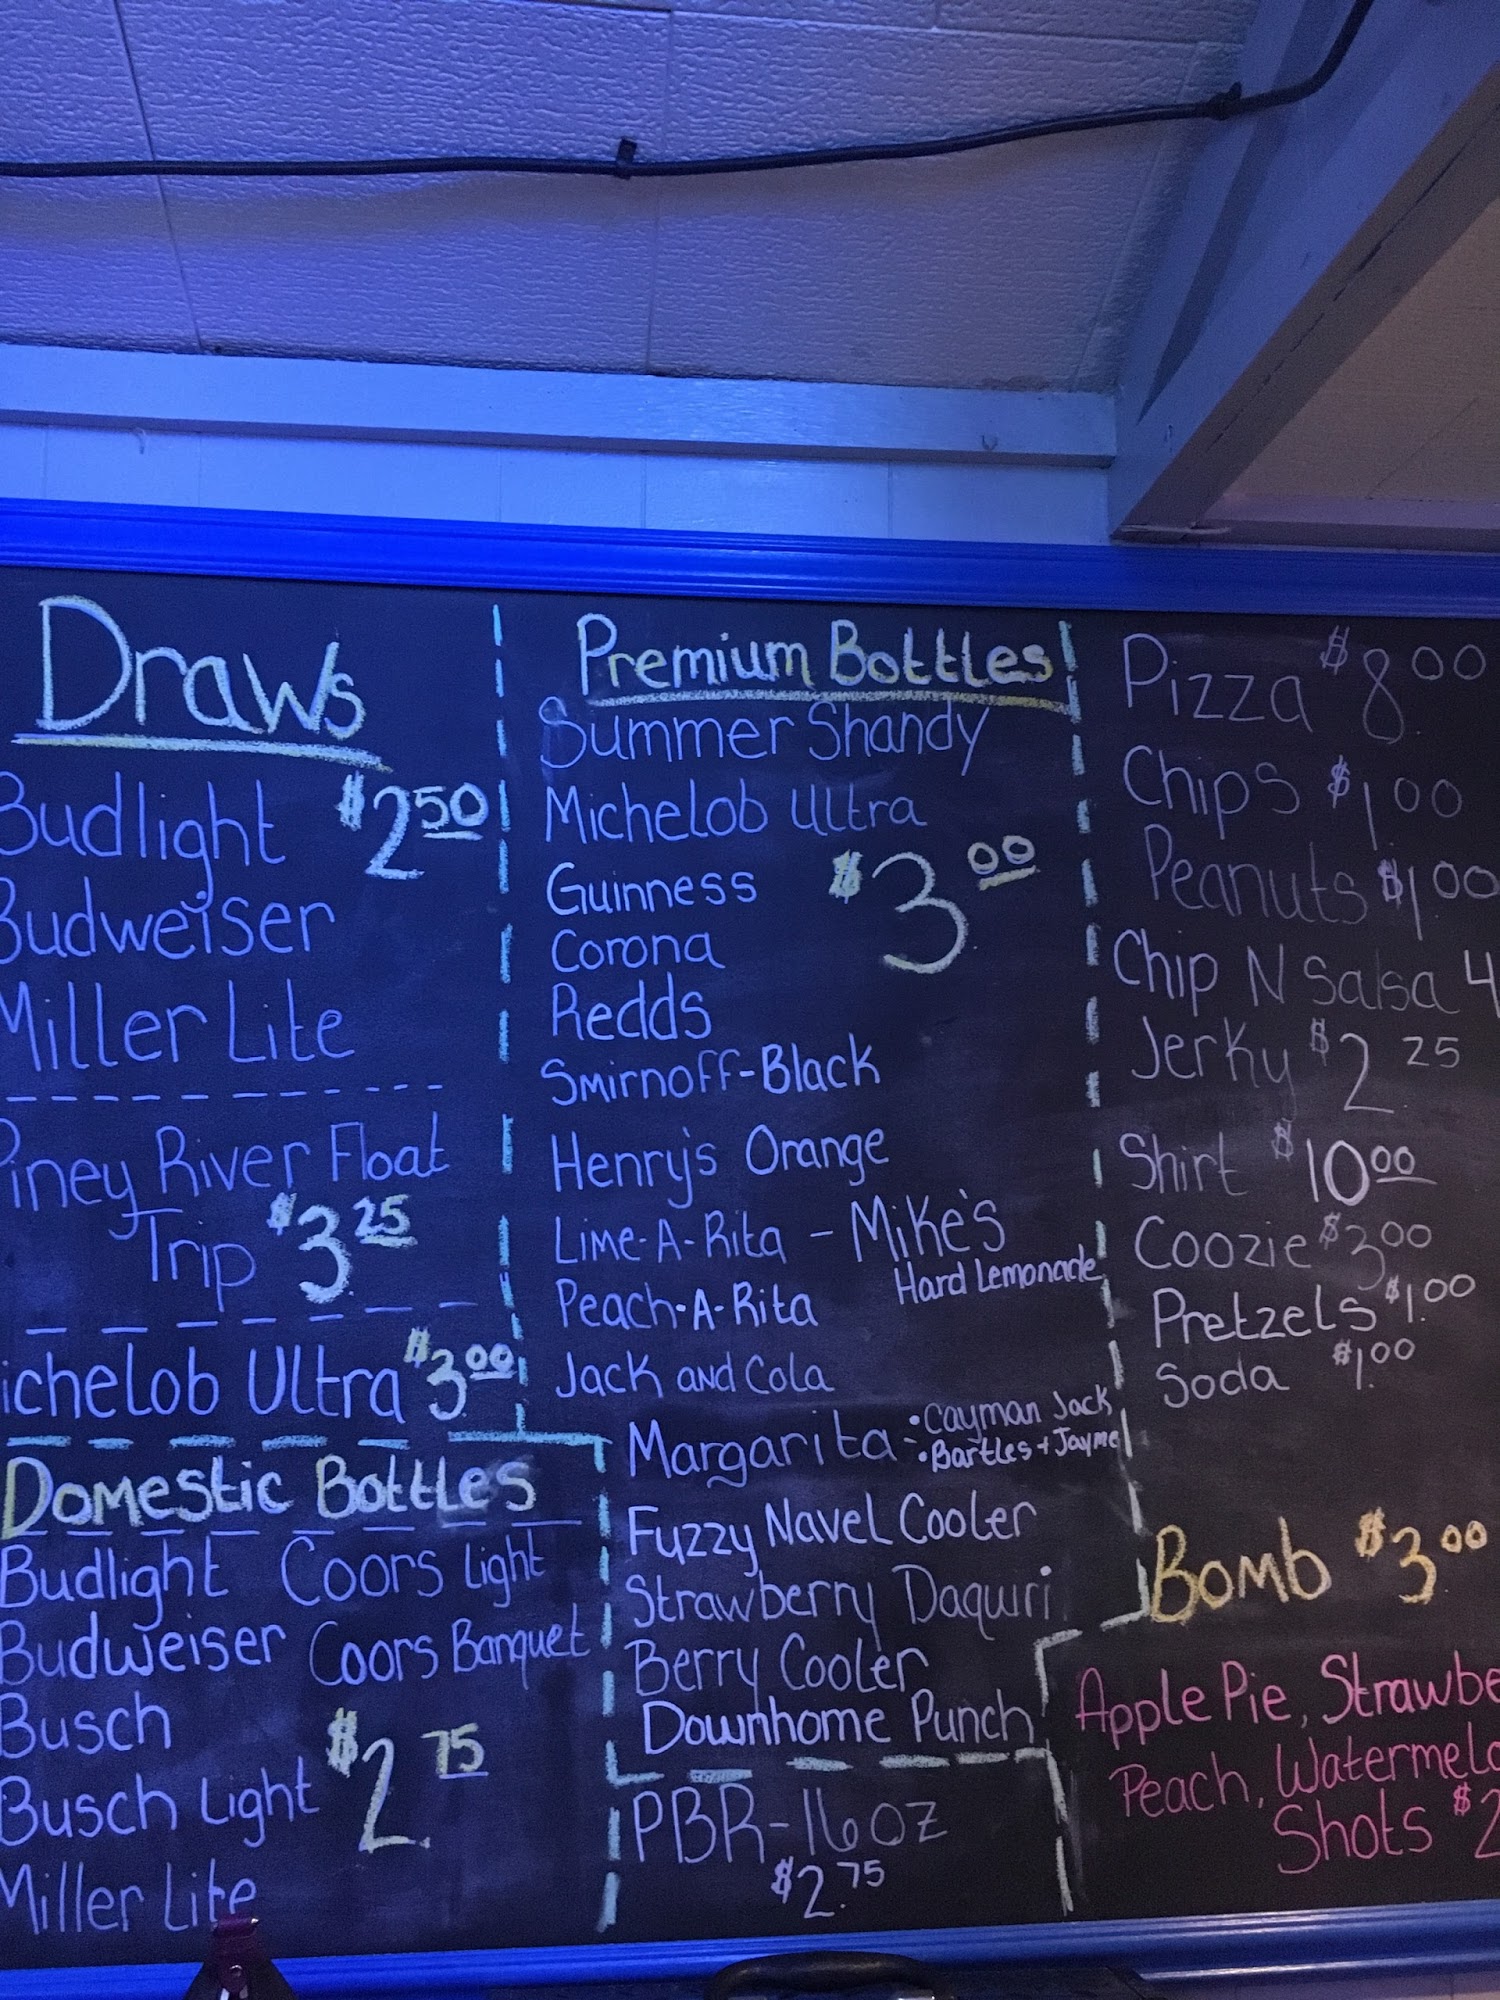 Draws
Budlight $2.50
Budweiser
Miller Lite
Piney River Float
Trip $3.25
ichelob Ultra $3.00
Domestic Bottles
Budlight Coors Light
Budweiser Coors Banquet
Busch
Busch Light $2.75
Miller Lite
Premium Bottles
Summer Shandy
Michelob Ultra
Guinness $3.00
Corona
Redds
Smirnoff-Black
Henry's Orange
Lime-A-Rita - Mike's
Hard Lemonade
Peach-A-Rita
Jack and Cola
Margarita - • Cayman Jack
• Bartles + Jayme
Fuzzy Navel Cooler
Strawberry Daquiri
Berry Cooler
Downhome Punch
PBR-16oz
$2.75
Pizza $8.00
Chips $1.00
Peanuts $1.00
Chip N Salsa 4
Jerky $2.25
Shirt $10.00
Coozie $3.00
Pretzels $1.00
Soda $1.00
Bomb $3.00
Apple Pie, Strawbe
Peach, Watermelo
Shots $2